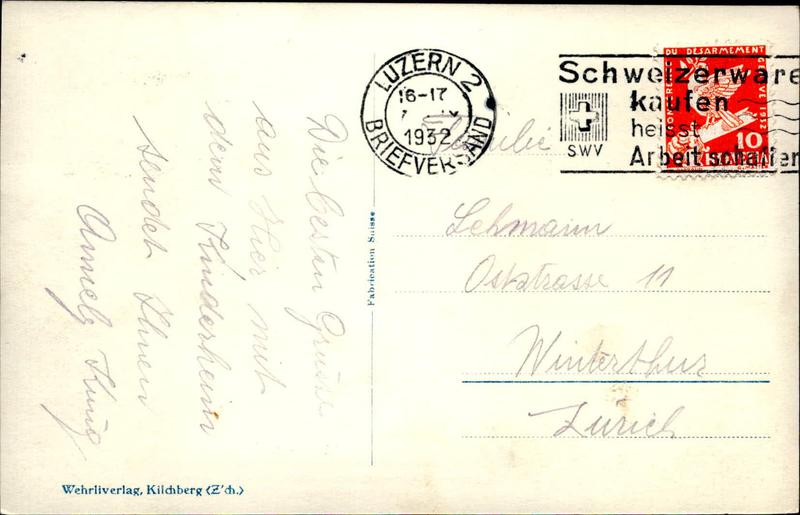 LUZERN 2
16-17
1932
BRIEFVERSAND
Schweizerware
kaufen
heisst
Arbeit schaffen
SWV
DU DÉSARMEMENT
GENÈVE 1932
10
Familie
Lehmann
Oststrasse 11
Winterthur
Zürich
Die besten Grüsse
aus Hier mit
dem Kinderheim
sendet Ihnen
Küng
Fabrication Suisse
Wehrliverlag, Kilchberg (Z'ch.)